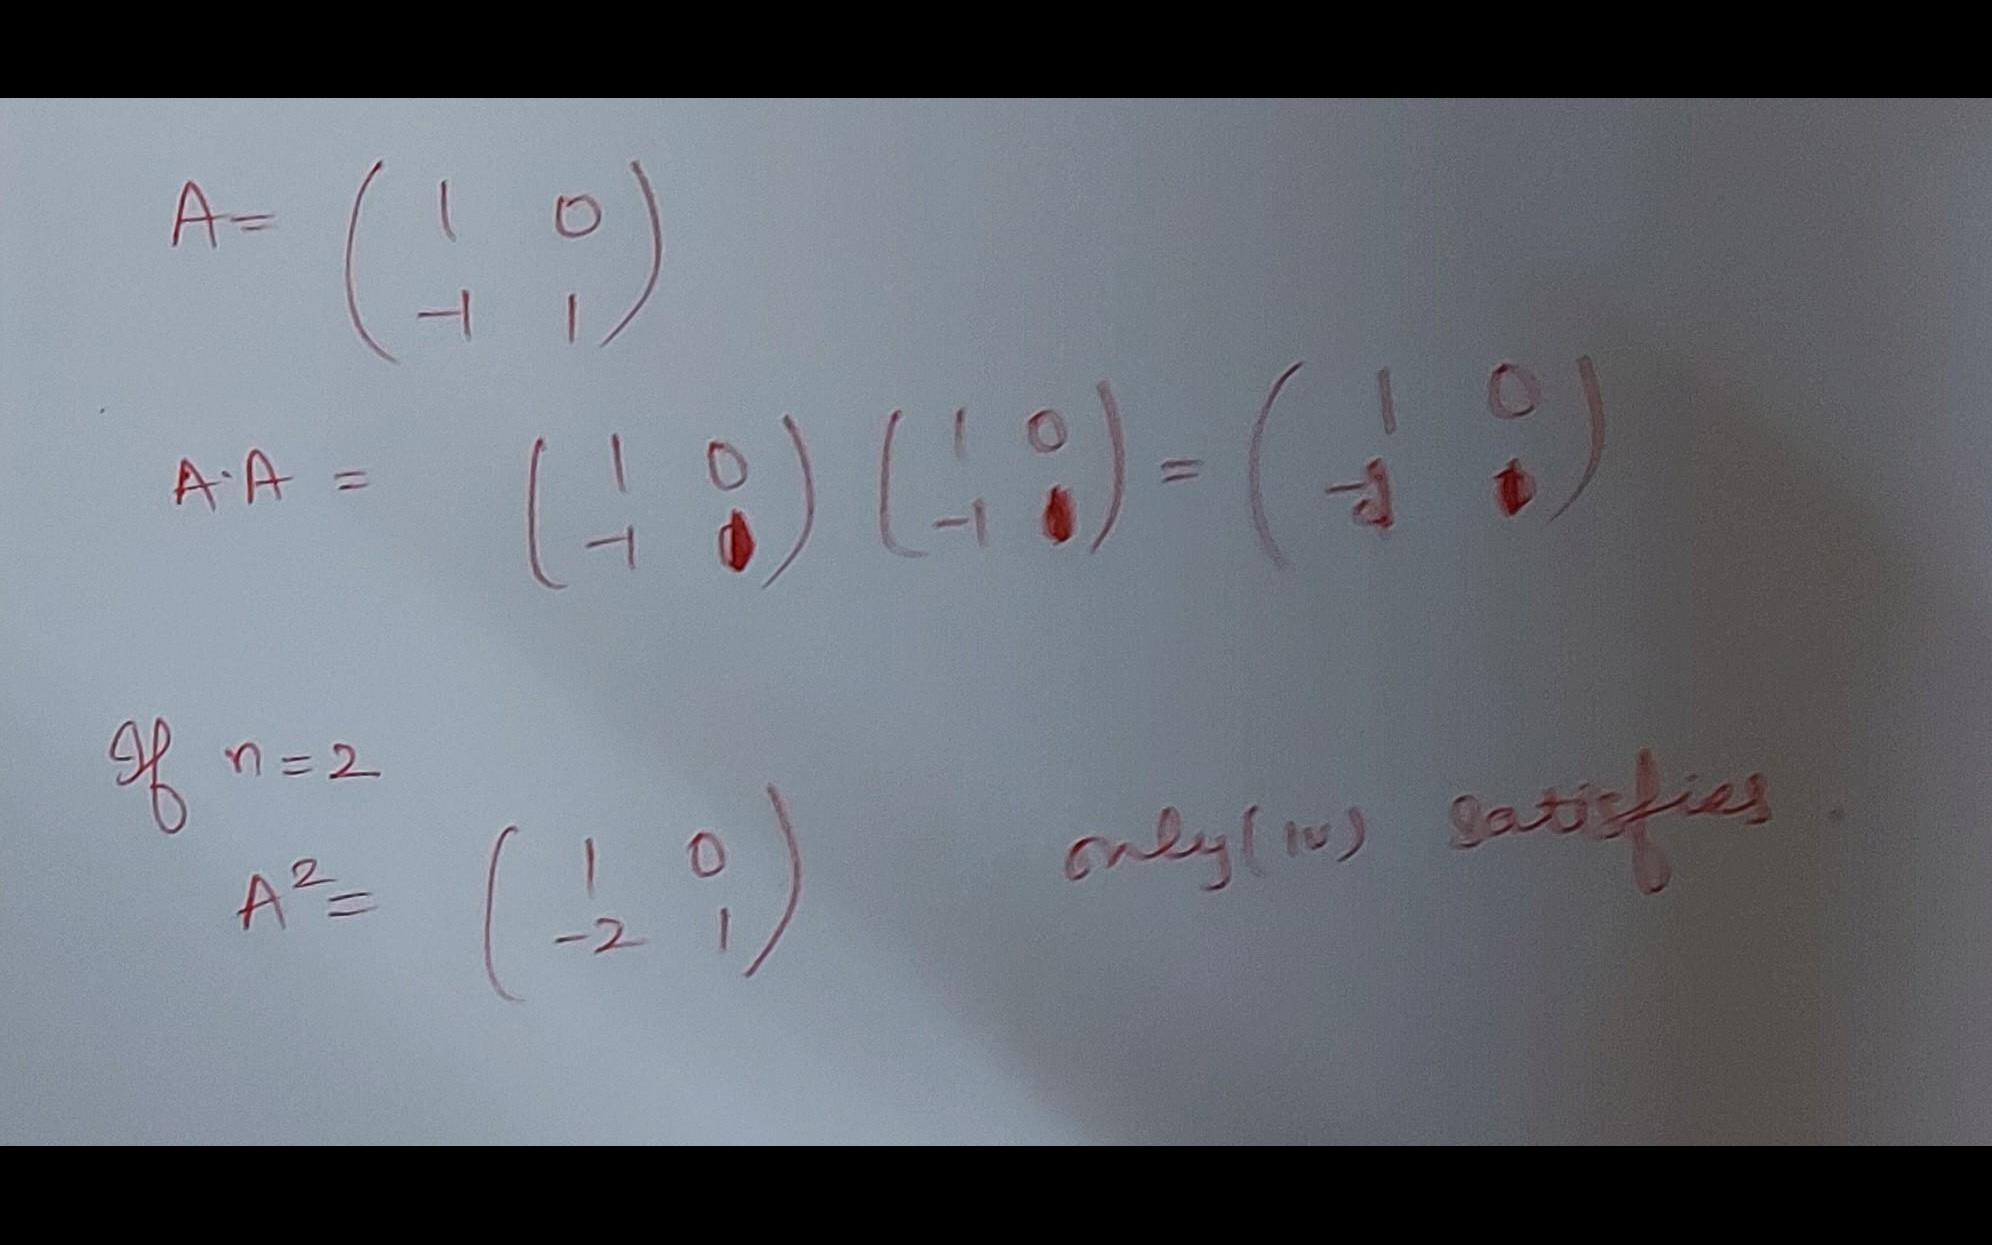 A = ( 1 0
-1 1 )
A·A = ( 1 0 ) ( 1 0 ) = ( 1 0 )
-1 1 -1 1 -2 1
If n = 2
A² = ( 1 0
-2 1 ) only (iv) satisfies.